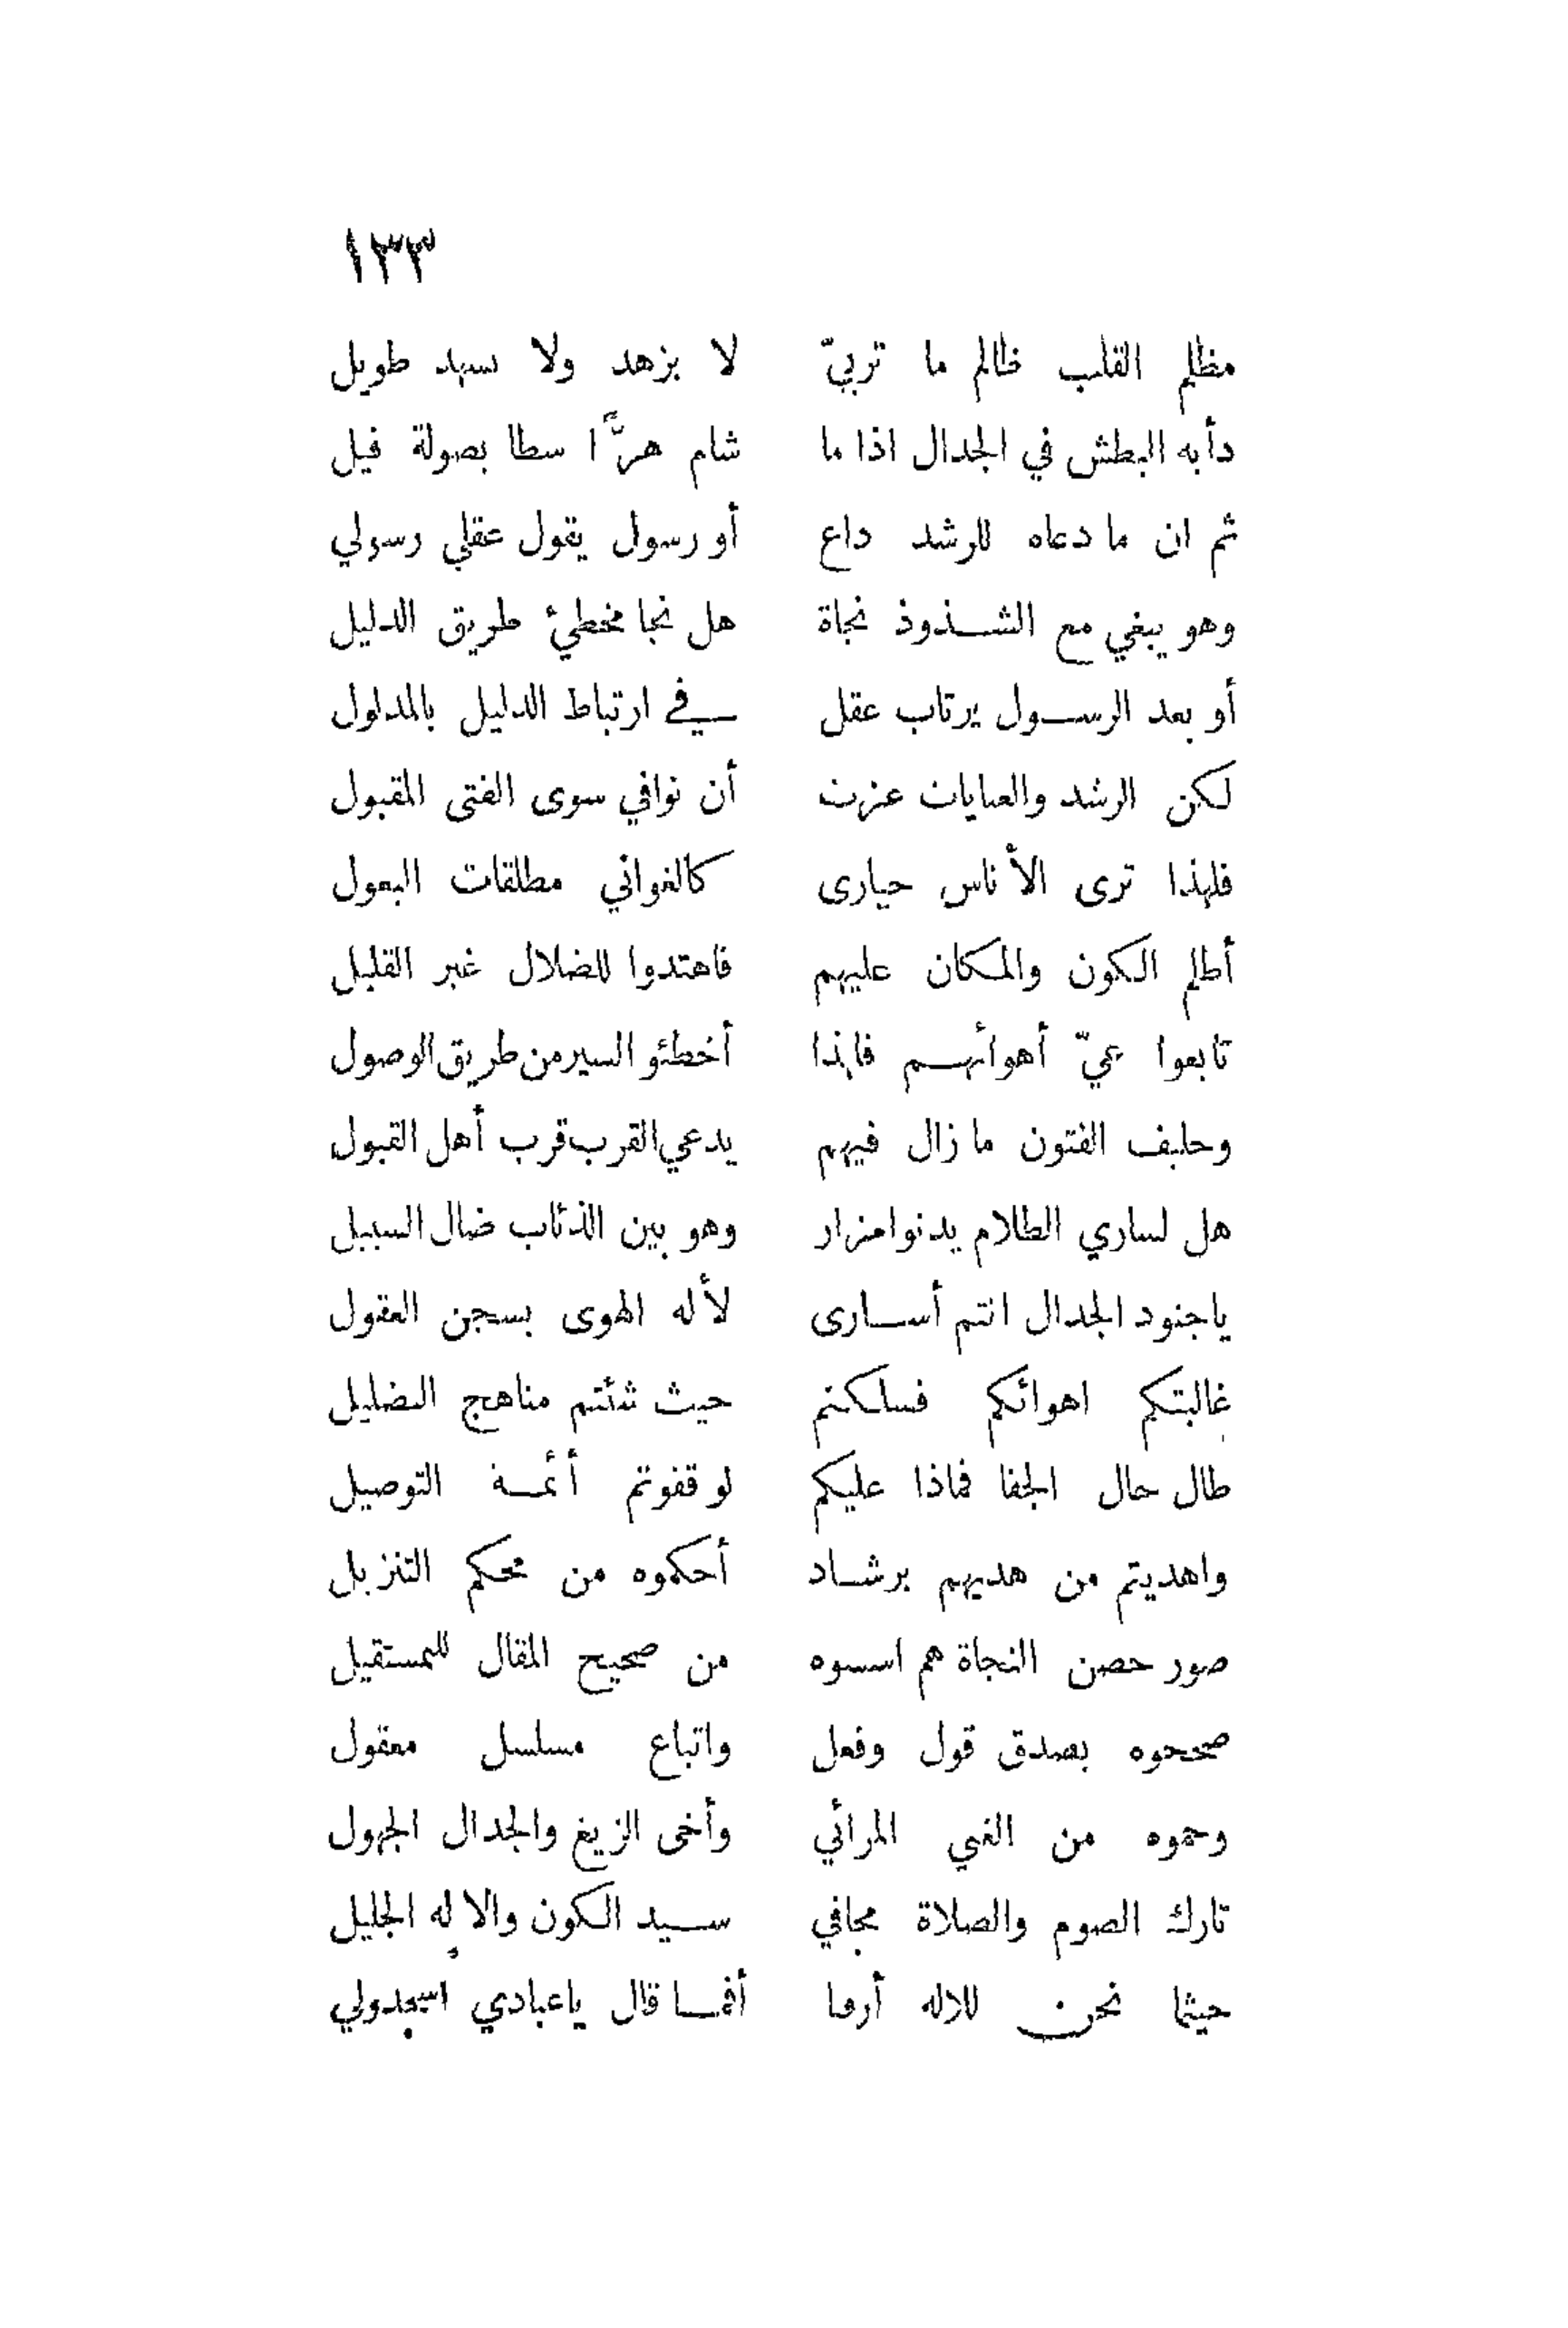 ١٣٣
مظلم القلب ظالم ما تربيّ لا بزهد ولا سهد طويل
دأبه البطش في الجدال اذا ما شام هرًّا سطا بصولة فيل
ثم ان ما دعاه للرشد داع أو رسول يقول عقلي رسولي
وهو يبغي مع الشذوذ نجاة هل نجا مخطئ طريق الدليل
أو بعد الرسول يرتاب عقل في ارتباط الدليل بالمدلول
لكن الرشد والعنايات عزت أن نوافي سوى الفتى المقبول
فلهذا ترى الأناس حيارى كالغواني مطلقات البعول
أظلم الكون والمكان عليهم فاهتدوا للضلال غير القليل
تابعوا عيّ أهوائهم فلهذا أخطئو السير من طريق الوصول
وحليف الفتون ما زال فيهم يدعي القرب قرب أهل القبول
هل لساري الظلام يدنوا مزار وهو بين الذئاب ضال السبيل
ياجنود الجدال انتم أسارى لأله الهوى بسجن العقول
غالبتكم اهوائكم فسلكتم حيث شئتم مناهج الضليل
طال حال الجفا فماذا عليكم لو قفوتم أئمة التوصيل
واهديتم من هديهم برشاد أحكموه من محكم التنزيل
صور حصن النجاة هم اسسوه من صحيح المقال للمستقيل
صححوه بصدق قول وفعل واتباع مسلسل معقول
وحموه من الغبي المرائي وأخى الزيغ والجدال الجهول
تارك الصوم والصلاة مجافي سيد الكون والاله الجليل
حيثما نحن للاله أرقا أفما قال ياعبادي اسجدولي